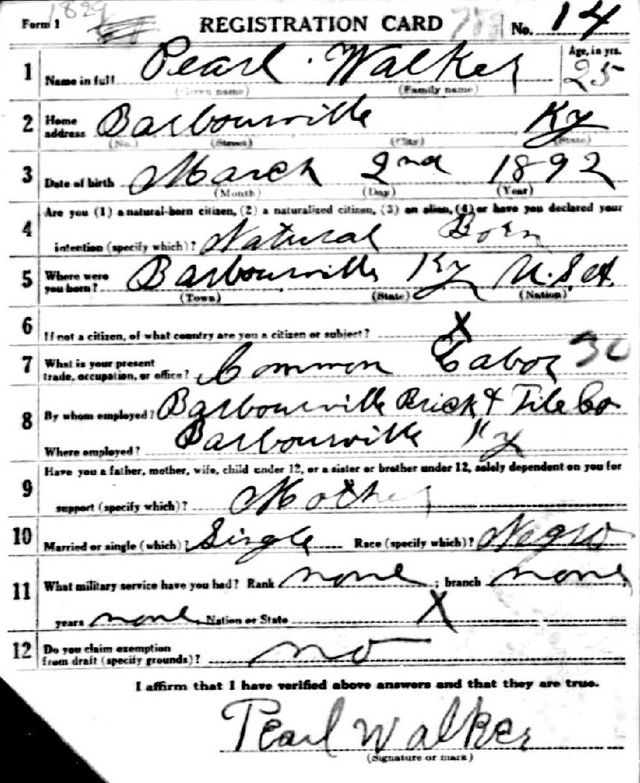 Form 1 1829 REGISTRATION CARD No. 14
1 Name in full Pearl Walker Age, in yrs. 25
(Given name) (Family name)
2 Home address Barbourville Ky
(No.) (Street) (City) (State)
3 Date of birth March 2nd 1892
(Month) (Day) (Year)
4 Are you (1) a natural-born citizen, (2) a naturalized citizen, (3) an alien, (4) or have you declared your
intention (specify which)? Natural Born
5 Where were you born? Barbourville Ky U.S.A.
(Town) (State) (Nation)
6 If not a citizen, of what country are you a citizen or subject? X
7 What is your present trade, occupation, or office? Common Labor 30
8 By whom employed? Barbourville Brick & Tile Co
Where employed? Barbourville Ky
9 Have you a father, mother, wife, child under 12, or a sister or brother under 12, solely dependent on you for
support (specify which)? Mother
10 Married or single (which)? Single Race (specify which)? Negro
11 What military service have you had? Rank none ; branch none
years none Nation or State X
12 Do you claim exemption from draft (specify grounds)? no
I affirm that I have verified above answers and that they are true.
Pearl Walker
(Signature or mark)